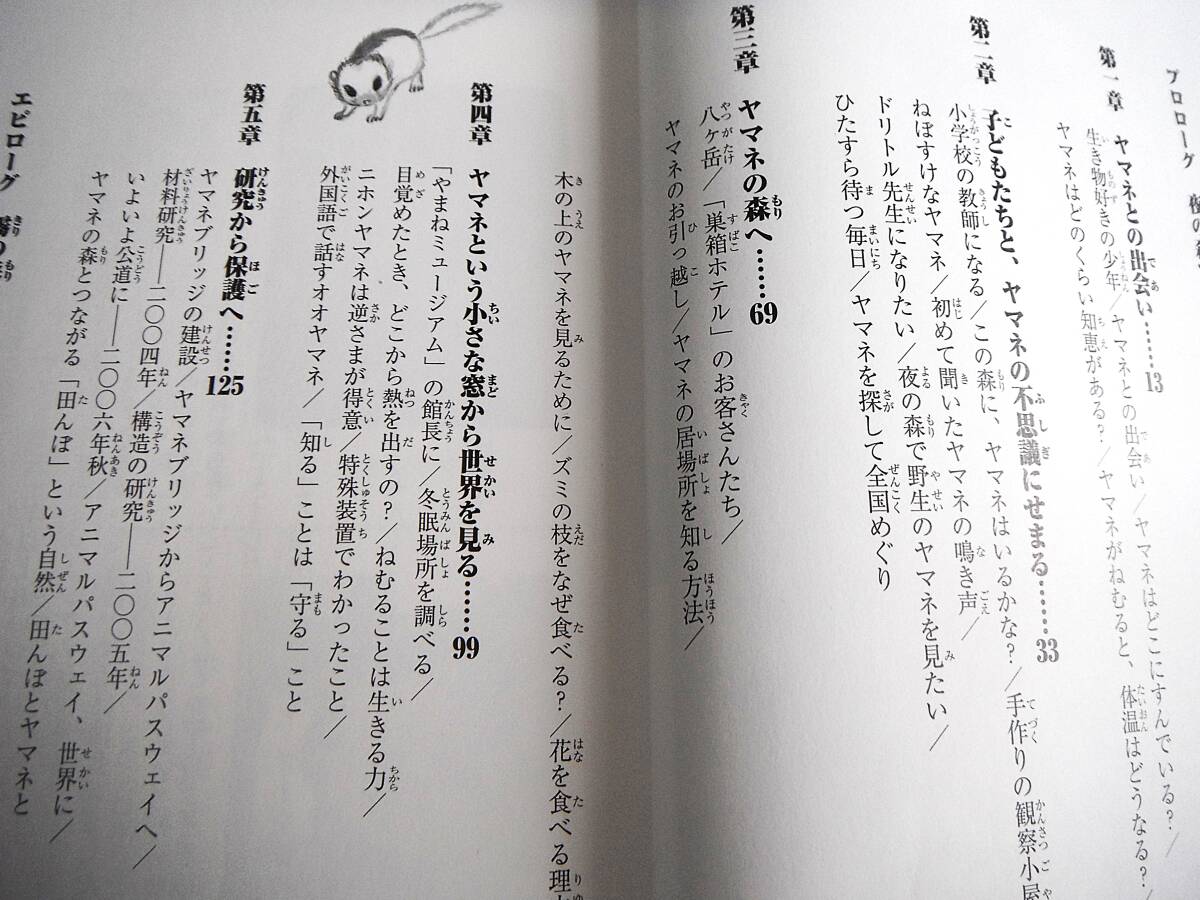 プロローグ 夜の森
第一章 ヤマネとの出会い……13
生き物好きの少年/ヤマネとの出会い/ヤマネはどこにすんでいる?/
ヤマネはどのくらい知恵がある?/ヤマネがねむると、体温はどうなる?
第二章 子どもたちと、ヤマネの不思議にせまる……33
小学校の教師になる/この森に、ヤマネはいるかな?/手作りの観察小屋
ねぼすけなヤマネ/初めて聞いたヤマネの鳴き声/
ドリトル先生になりたい/夜の森で野生のヤマネを見たい/
ひたすら待つ毎日/ヤマネを探して全国めぐり
第三章 ヤマネの森へ……69
八ヶ岳/「巣箱ホテル」のお客さんたち/
ヤマネのお引っ越し/ヤマネの居場所を知る方法/
木の上のヤマネを見るために/ズミの枝をなぜ食べる?/花を食べる理
第四章 ヤマネという小さな窓から世界を見る……99
「やまねミュージアム」の館長に/冬眠場所を調べる/
目覚めたとき、どこから熱を出すの?/ねむることは生きる力/
ニホンヤマネは逆さまが得意/特殊装置でわかったこと/
外国語で話すオオヤマネ/「知る」ことは「守る」こと
第五章 研究から保護へ……125
ヤマネブリッジの建設/ヤマネブリッジからアニマルパスウェイへ/
材料研究――二〇〇四年/構造の研究――二〇〇五年/
いよいよ公道に――二〇〇六年秋/アニマルパスウェイ、世界に/
ヤマネの森とつながる「田んぼ」という自然/田んぼとヤマネと
エピローグ 霧の森